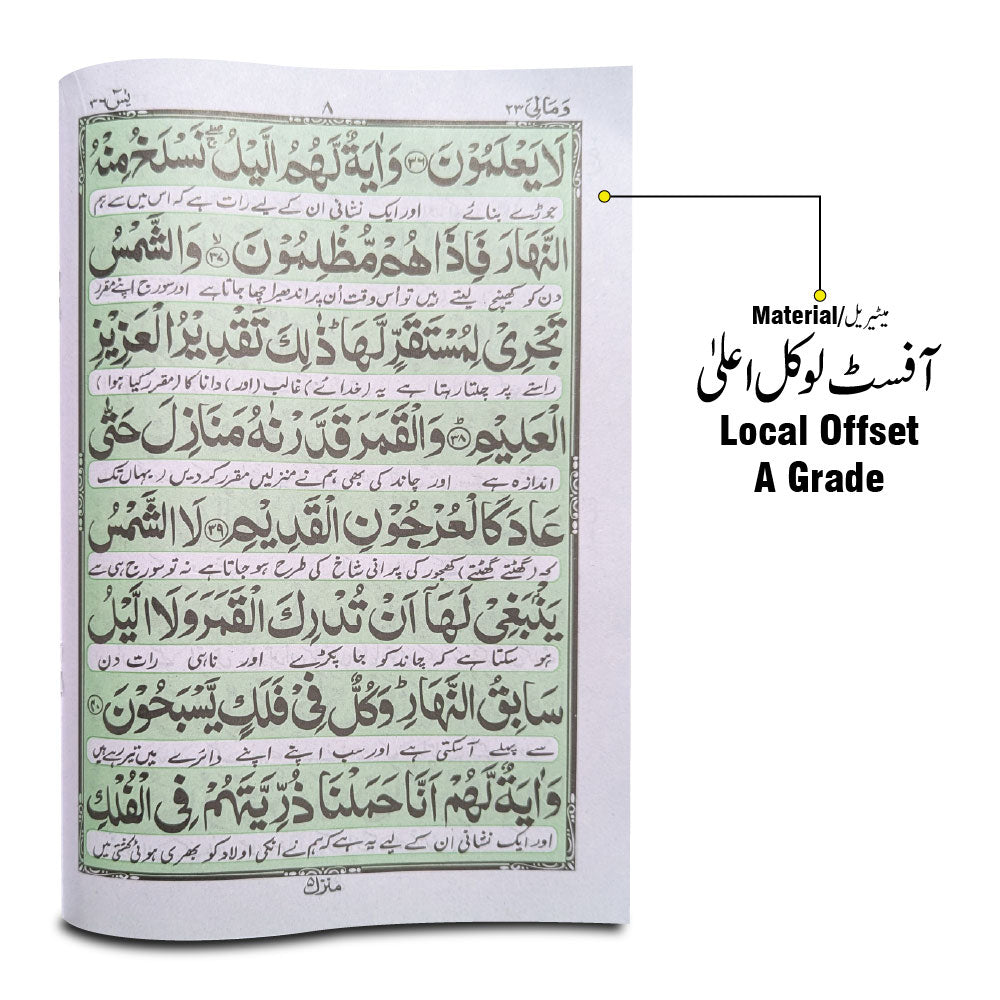 وَمَالِیَ ٢٣
٨
یٰسٓ ٣٦
لَا يَعْلَمُوْنَ ﴿٣٦﴾ وَاٰيَةٌ لَّهُمُ الَّيْلُ ۖۚ نَسْلَخُ مِنْهُ
جوڑے بنائے اور ایک نشانی ان کے لیے رات ہے کہ اس میں سے ہم
النَّهَارَ فَاِذَا هُمْ مُّظْلِمُوْنَ ﴿٣٧﴾ۙ وَالشَّمْسُ
دن کو کھینچ لیتے ہیں تو اُس وقت اُن پر اندھیرا چھا جاتا ہے اور سورج اپنے مقرر
تَجْرِيْ لِمُسْتَقَرٍّ لَّهَا ؕ ذٰلِكَ تَقْدِيْرُ الْعَزِيْزِ
راستے پر چلتا رہتا ہے یہ (خدائے) غالب (اور) دانا کا (مقرر کیا ہوا)
الْعَلِيْمِ ﴿٣٨﴾ؕ وَالْقَمَرَ قَدَّرْنٰهُ مَنَازِلَ حَتّٰى
اندازہ ہے اور چاند کی بھی ہم نے منزلیں مقرر کر دیں (یہاں تک
عَادَ كَالْعُرْجُوْنِ الْقَدِيْمِ ﴿٣٩﴾ لَا الشَّمْسُ
کہ (گھٹتے گھٹتے) کھجور کی پرانی شاخ کی طرح ہو جاتا ہے نہ تو سورج ہی سے
يَنْۢبَغِيْ لَهَاۤ اَنْ تُدْرِكَ الْقَمَرَ وَلَا الَّيْلُ
ہو سکتا ہے کہ چاند کو جا پکڑے اور نا ہی رات دن
سَابِقُ النَّهَارِ ؕ وَكُلٌّ فِيْ فَلَكٍ يَّسْبَحُوْنَ ﴿٤٠﴾
سے پہلے آسکتی ہے اور سب اپنے اپنے دائرے میں تیر رہے ہیں
وَاٰيَةٌ لَّهُمْ اَنَّا حَمَلْنَا ذُرِّيَّتَهُمْ فِى الْفُلْكِ
اور ایک نشانی ان کے لیے یہ ہے کہ ہم نے انکی اولاد کو بھری ہوئی کشتی میں
منزل ٥
Material/میٹیریل
آفسٹ لوکل اعلیٰ
Local Offset
A Grade